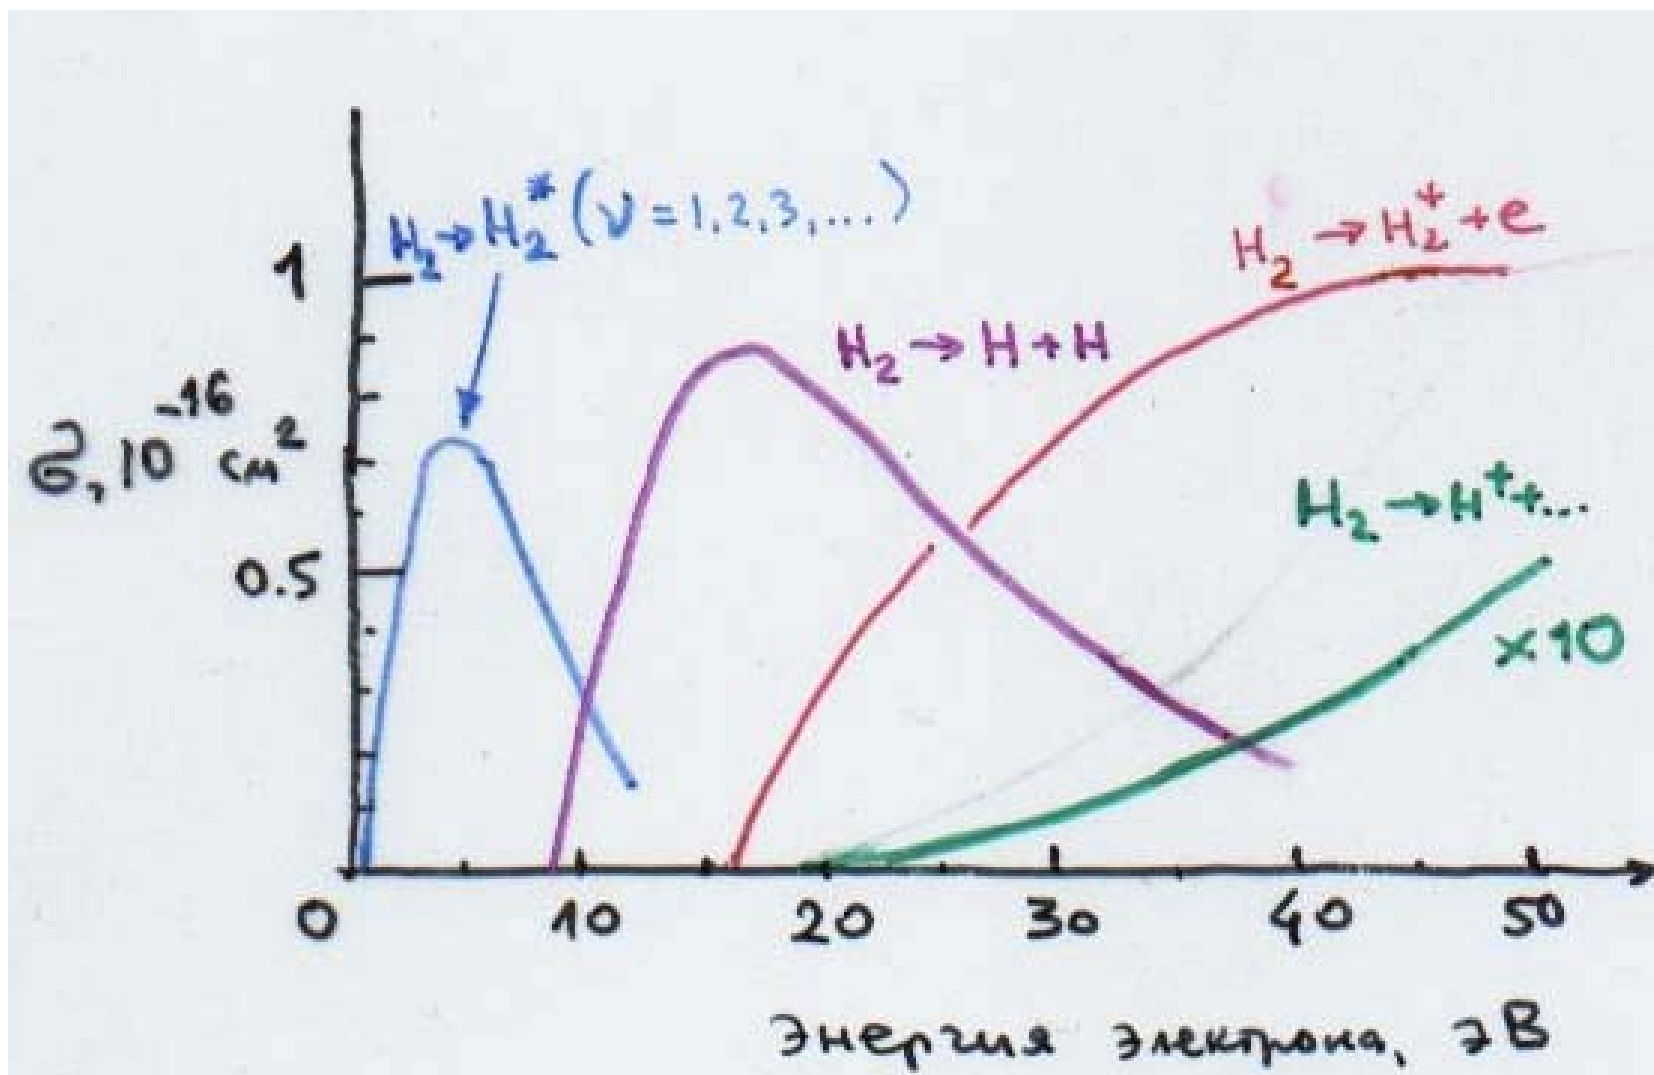 H₂→H₂* (ν = 1,2,3,...)
H₂ → H₂⁺ + e
1
H₂ → H + H
σ, 10⁻¹⁶ см²
H₂ → H⁺ + ...
0.5
×10
0 10 20 30 40 50
Энергия электрона, эВ